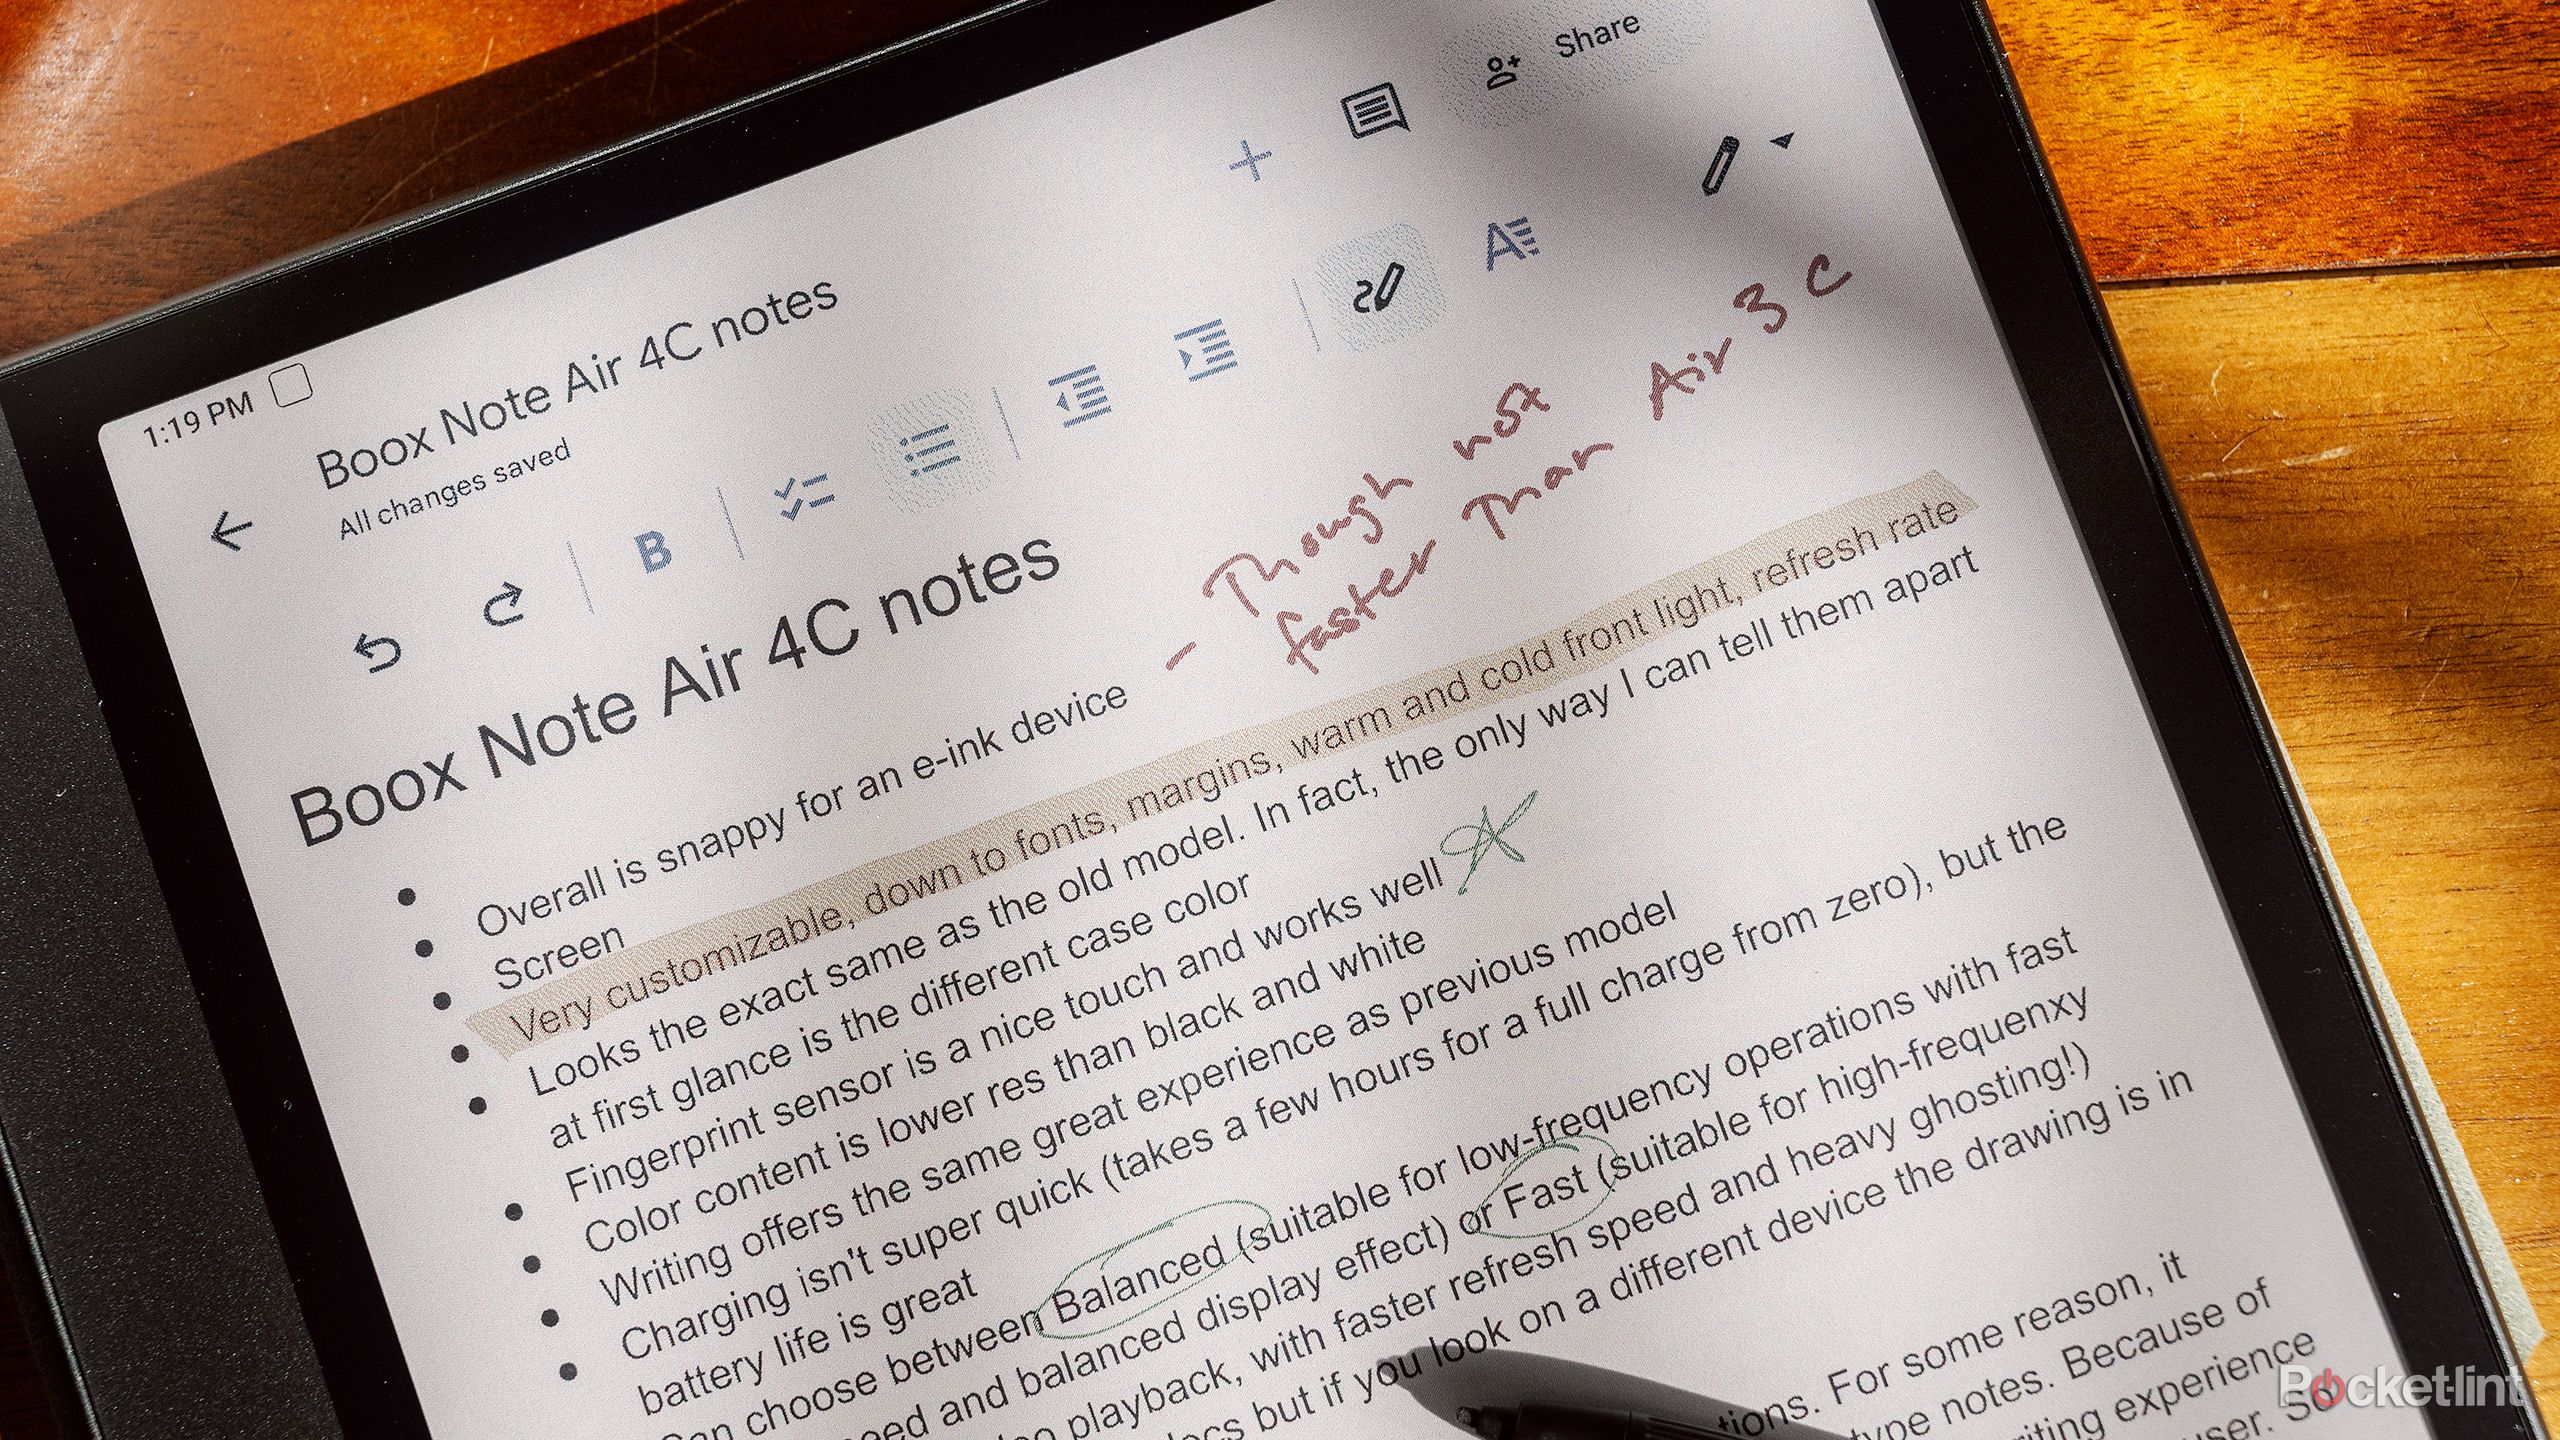 1:19 PM
Share
Boox Note Air 4C notes
All changes saved
B
Though not
faster Than Air 3 C
Boox Note Air 4C notes
Overall is snappy for an e-ink device -
Screen
Very customizable, down to fonts, margins, warm and cold front light, refresh rate
Looks the exact same as the old model. In fact, the only way I can tell them apart
at first glance is the different case color
Fingerprint sensor is a nice touch and works well
Color content is lower res than black and white
Writing offers the same great experience as previous model
Charging isn't super quick (takes a few hours for a full charge from zero), but the
battery life is great
choose between Balanced (suitable for low-frequency operations with fast
and balanced display effect) or Fast (suitable for high-frequenxy
playback, with faster refresh speed and heavy ghosting!)
but if you look on a different device the drawing is in
For some reason, it
type notes. Because of
experience
So
Pocket-lint